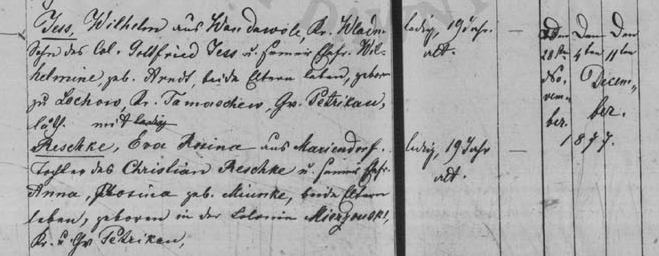 Jess, Wilhelm aus Wandawola, Kr. Wladm.
Sohn des Col. Gottfried Jess u. seiner Ehefr. Wil-
helmine geb. Arndt, beide Eltern leben, geboren
zu Lochow, Kr. Tomaschew, Gv. Petrikau,
luth. mit ledig
Reschke, Eva Rosina aus Mariendorf.
Tochter des Christian Reschke u. seiner Ehefr.
Anna, Rosina geb. Miunke, beide Eltern
leben, geboren in der Colonie
Kr. u. Gv Petrikau,
ledig, 19 Jahr.
alt.
ledig, 19 Jahr
alt.
Den Den Den
28ten 4ten 11ten
No-
vem-
ber.
Decem-
ber.
1877.